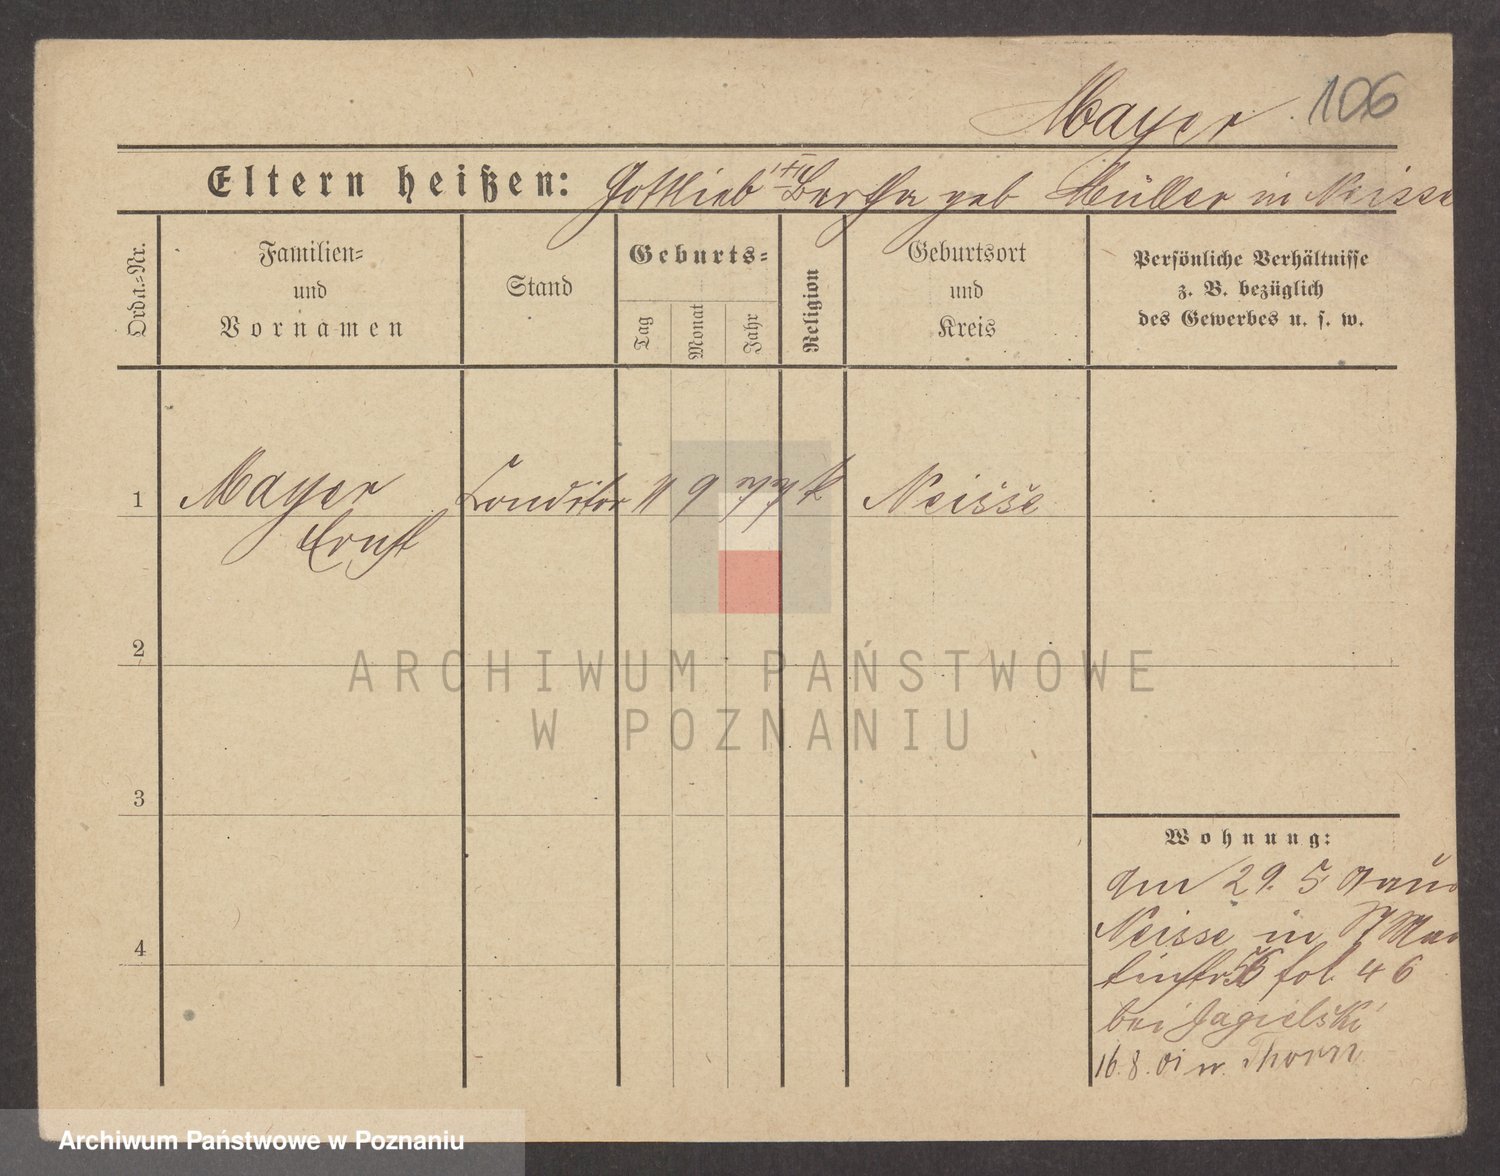 Mayer 106
Eltern heißen: Gottlieb u Bertha geb Müller in Neisse
Ordn.-Nr.
Familien-
und
Vornamen
Stand
Geburts-
Tag
Monat
Jahr
Religion
Geburtsort
und
Kreis
Persönliche Verhältnisse
z. B. bezüglich
des Gewerbes u. s. w.
1 Mayer Conditor 11 9 77 k Neisse
Ernst
2
3
4
Wohnung:
am 29. 5 aus
Neisse in St Mar
tinstr 56 fol. 46
bei Jagielski
16. 8. 01 n. Thorn
ARCHIWUM PAŃSTWOWE
W POZNANIU
Archiwum Państwowe w Poznaniu